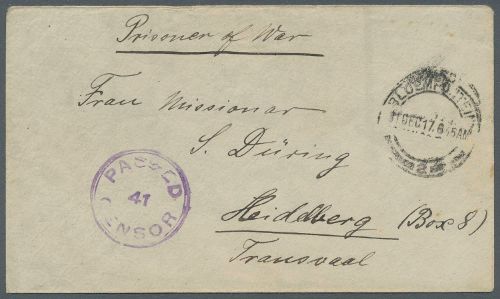 Prisoner of War
Frau Missionar
S. Düring
Heidelberg (Box 8)
Transvaal
PASSED
41
CENSOR
BLOEMFONTEIN
DEC 17 6 45AM